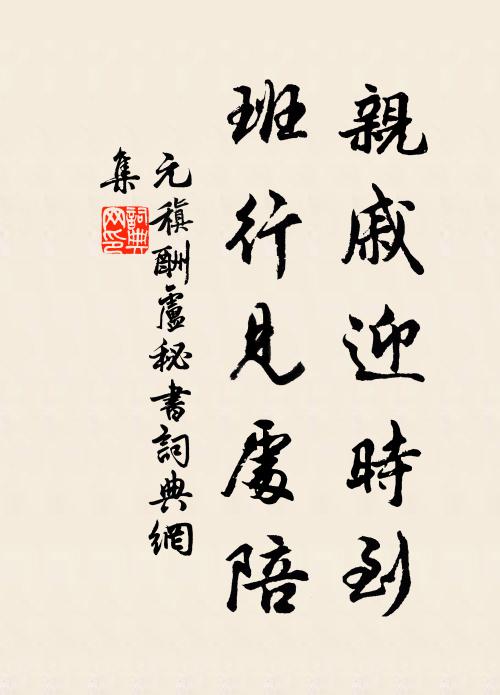 親戚迎時到
班行見處陪
元稹酬盧秘書詞典網
集
詞典網印